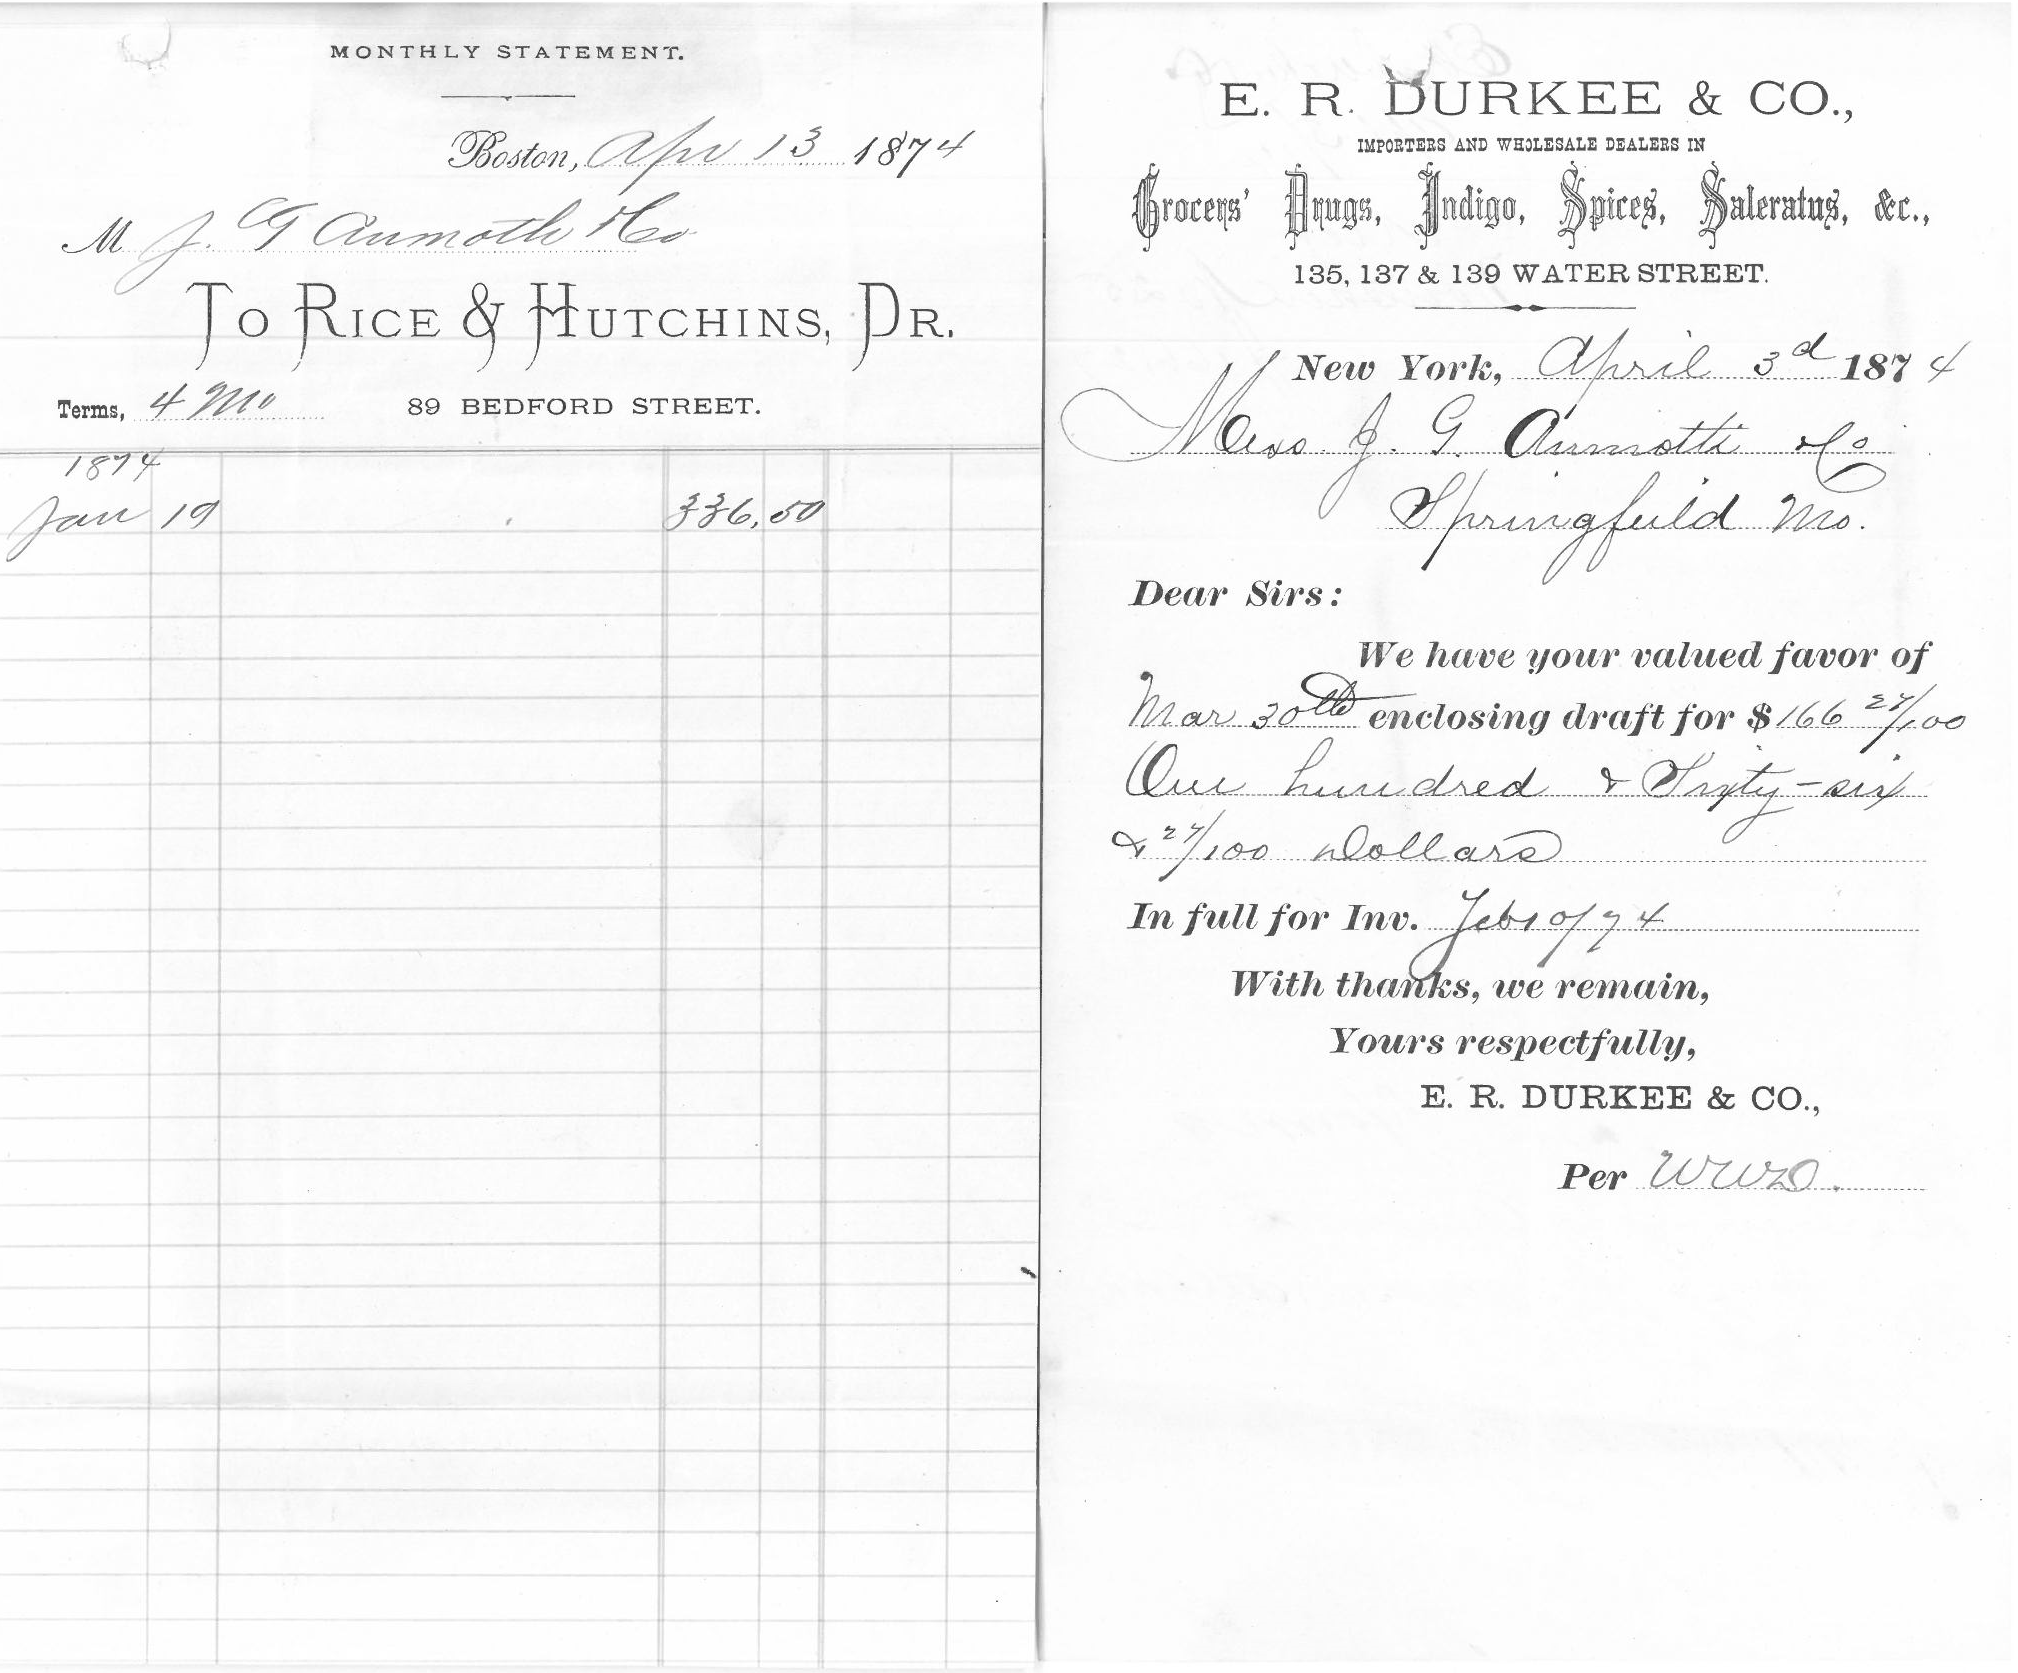 MONTHLY STATEMENT.
Boston, Apr 13 1874
M J. G Aumoth & Co
TO RICE & HUTCHINS, DR.
Terms, 4 Mo 89 BEDFORD STREET.
1874
Jan 19 336.50
E. R. DURKEE & CO.,
IMPORTERS AND WHOLESALE DEALERS IN
Grocers' Drugs, Indigo, Spices, Saleratus, &c.,
135, 137 & 139 WATER STREET.
New York, April 3d 1874
Mess J. G. Aumotti & Co
Springfeild Mo.
Dear Sirs:
We have your valued favor of
Mar 30th enclosing draft for $166 27/100
One hundred & Sixty-six
& 27/100 Dollars
In full for Inv. Feb 10/74
With thanks, we remain,
Yours respectfully,
E. R. DURKEE & CO.,
Per WWD.